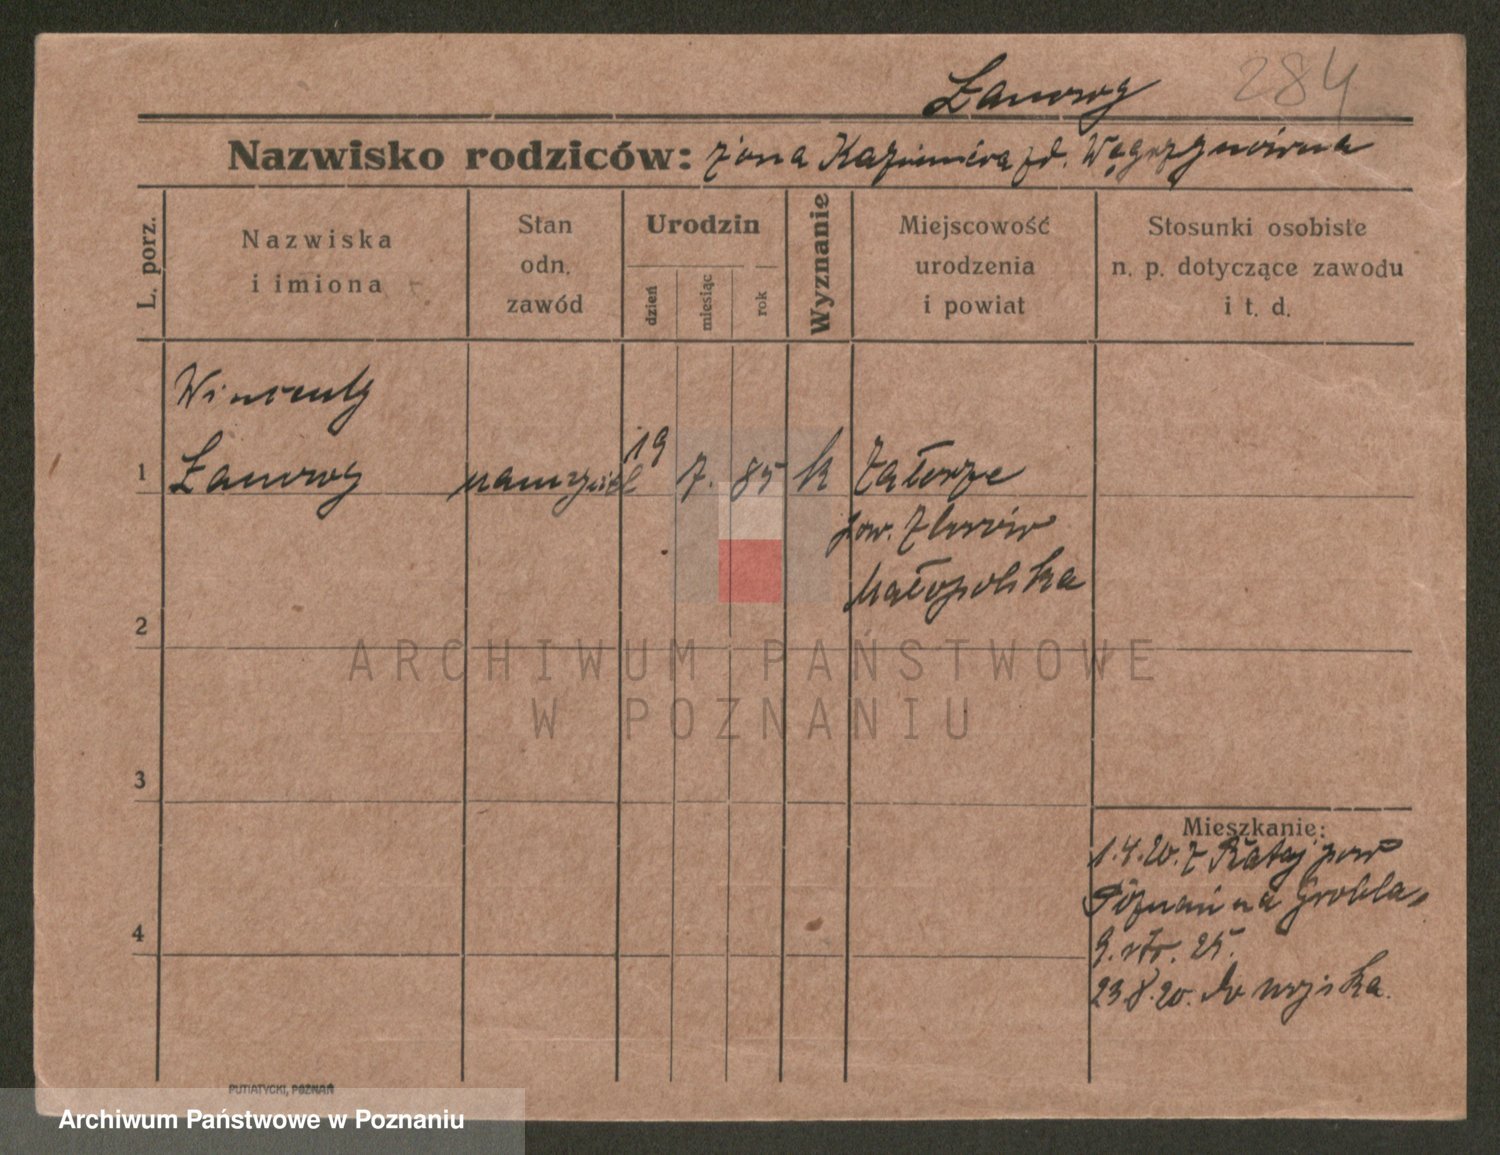 284
Łanowy
Nazwisko rodziców: żona Kazimiera zd. Węgrzynówna
L. porz.
Nazwiska
i imiona
Stan
odn.
zawód
Urodzin
dzień
miesiąc
rok
Wyznanie
Miejscowość
urodzenia
i powiat
Stosunki osobiste
n. p. dotyczące zawodu
i t. d.
Wincenty
1 Łanowy nauczyciel 19 7. 85 k Załoźce
pow. Zborów
Małopolska
2
ARCHIWUM PAŃSTWOWE
W POZNANIU
3
Mieszkanie:
1.4.20. z Rataj pow
Poznań na Grobla
9. 25.
4
23.8.20. do wojska.
PUTIATYCKI, POZNAŃ
Archiwum Państwowe w Poznaniu